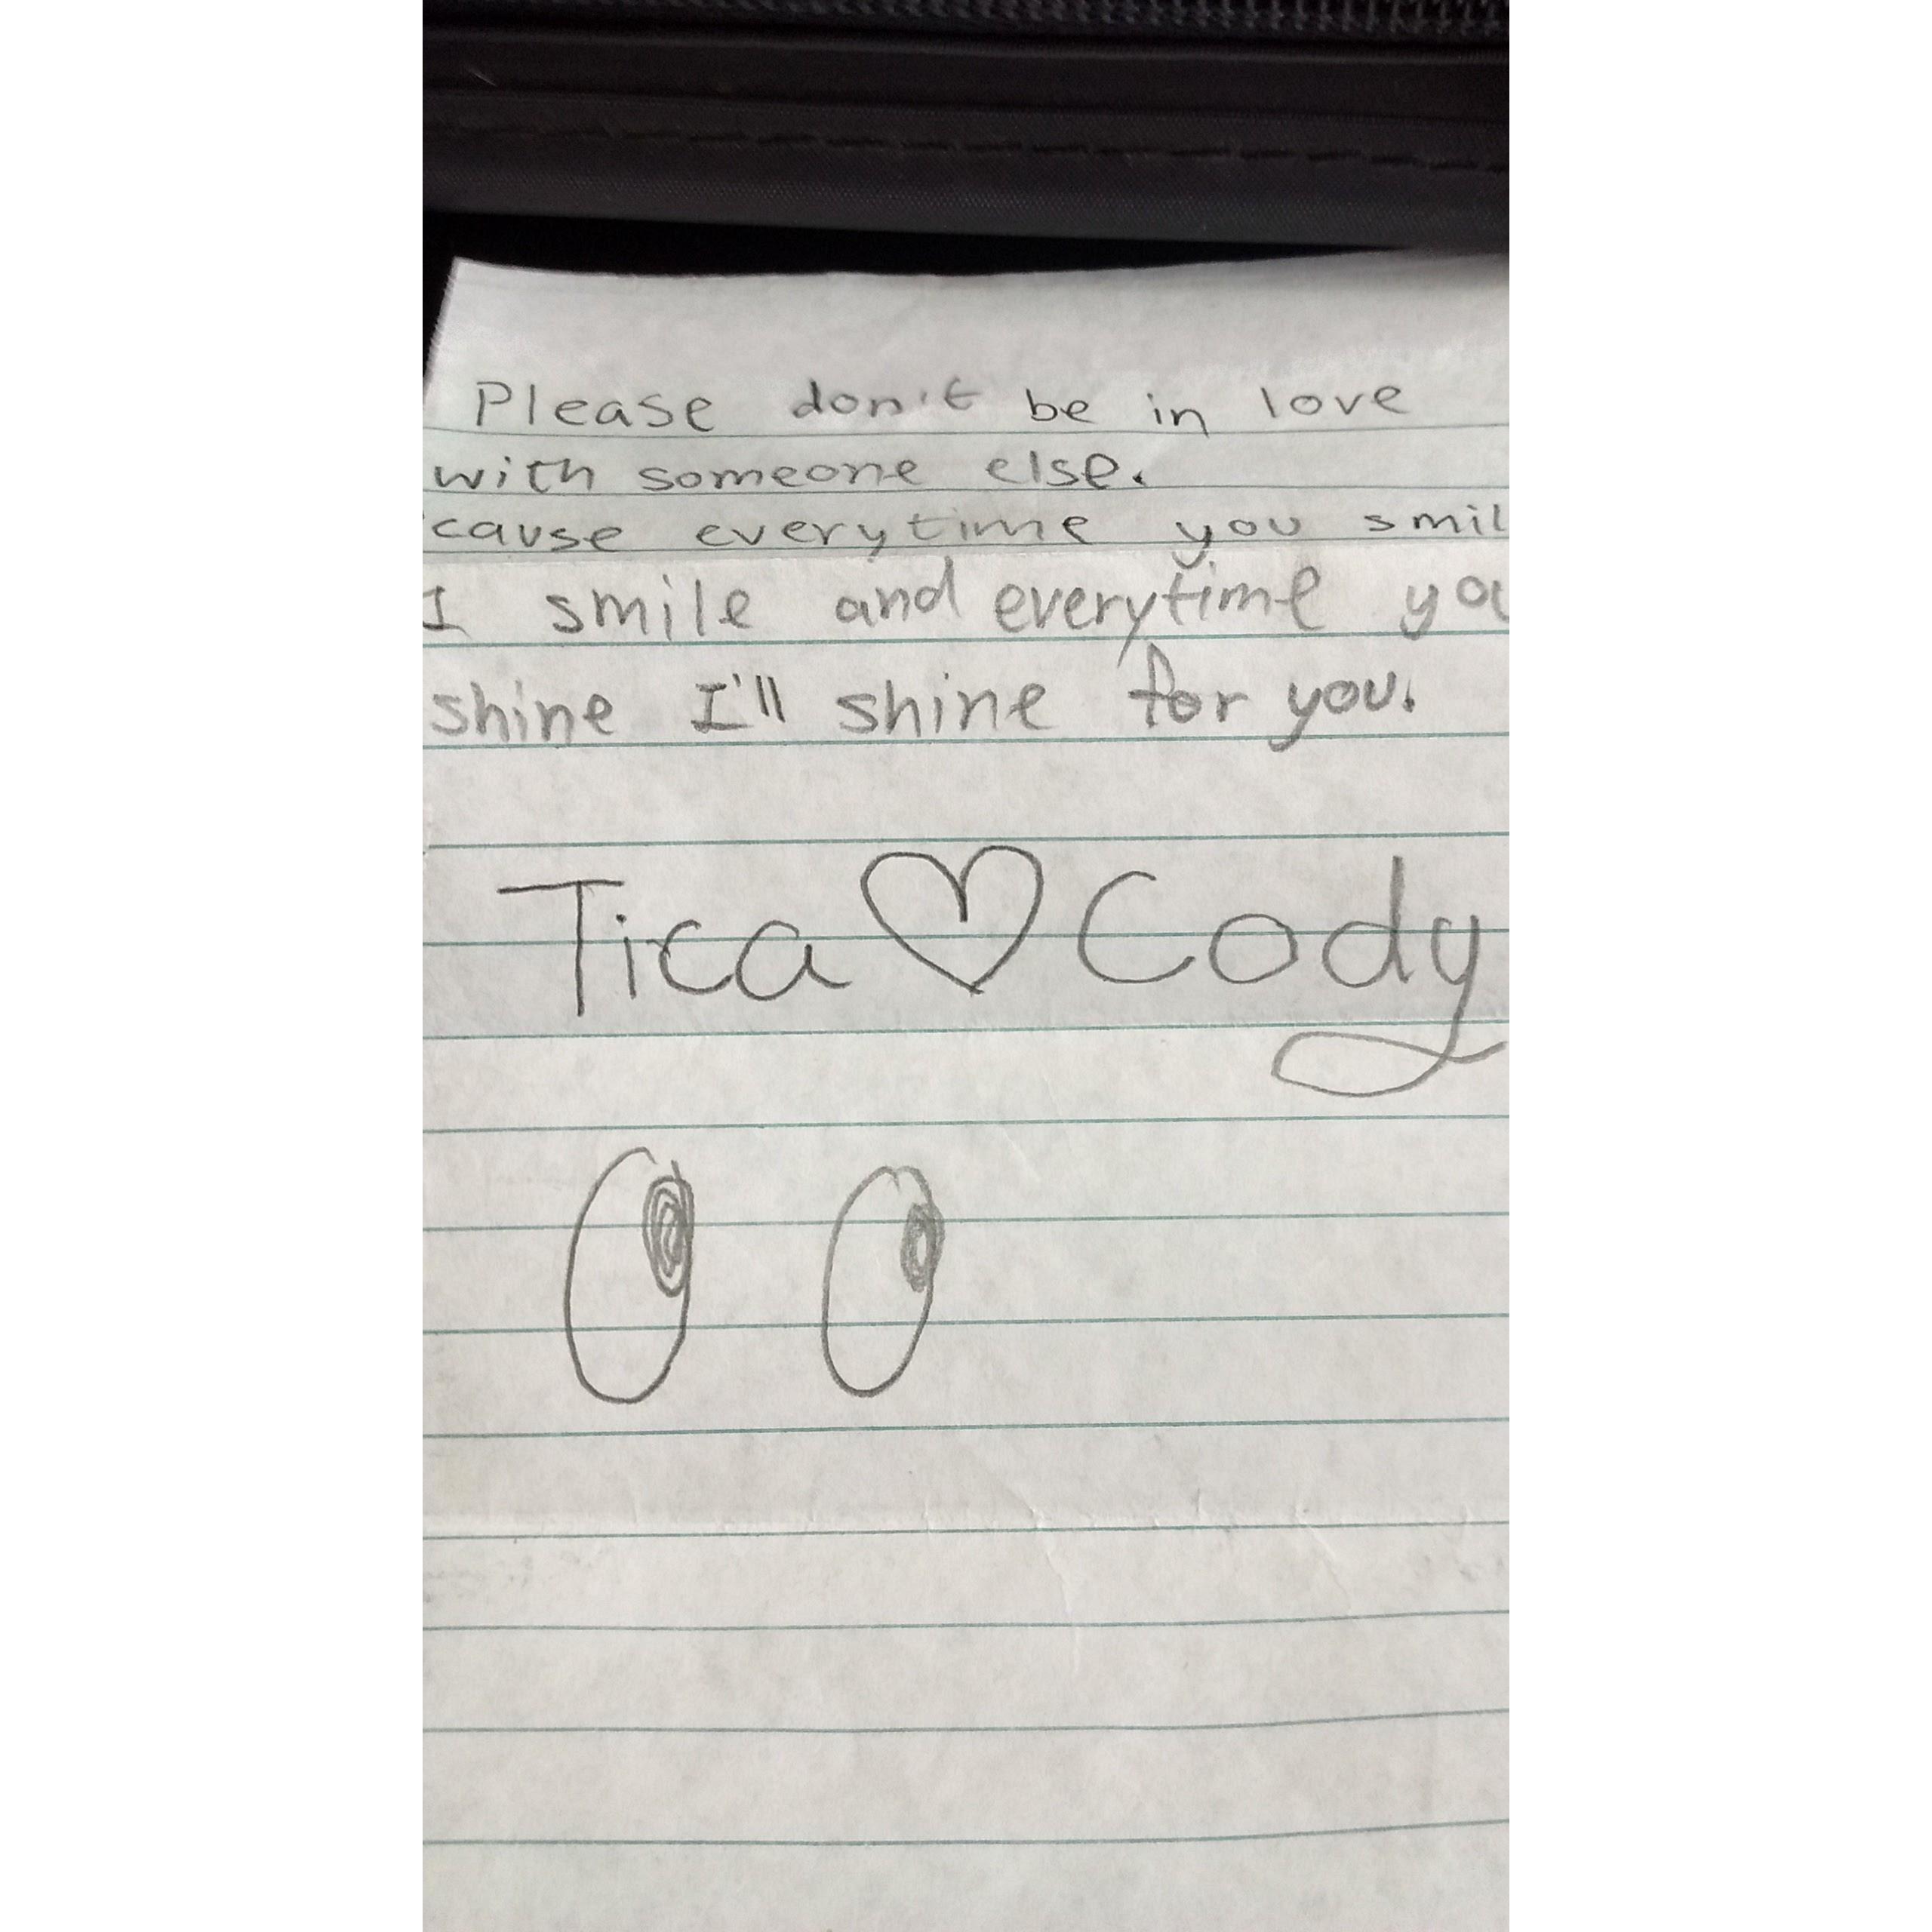 Please don't be in love
with someone else.
'cause everytime you smil
I smile and everytime you
shine I'll shine for you.
Tica ♡ Cody